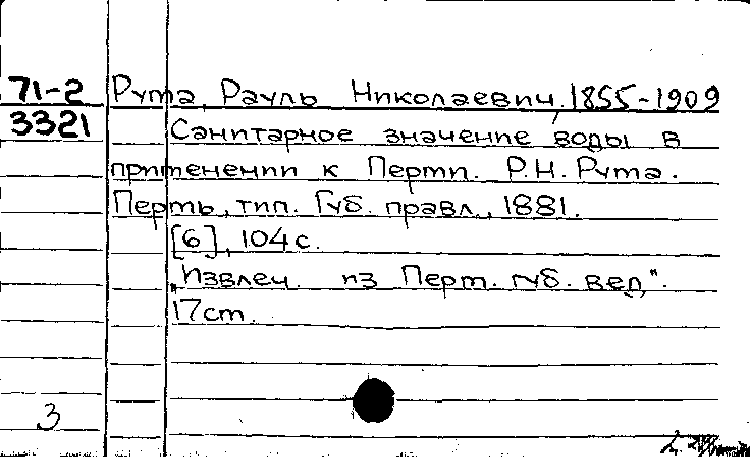 71-2 Рума, Рауль Николаевич. 1855-1909
3321 Санитарное значение воды в
применении к Перми. Р.Н. Рума.
Пермь, тип. Губ. правл., 1881.
[6], 104 с.
„Извлеч. из Перм. губ. вед."
17 см.
3